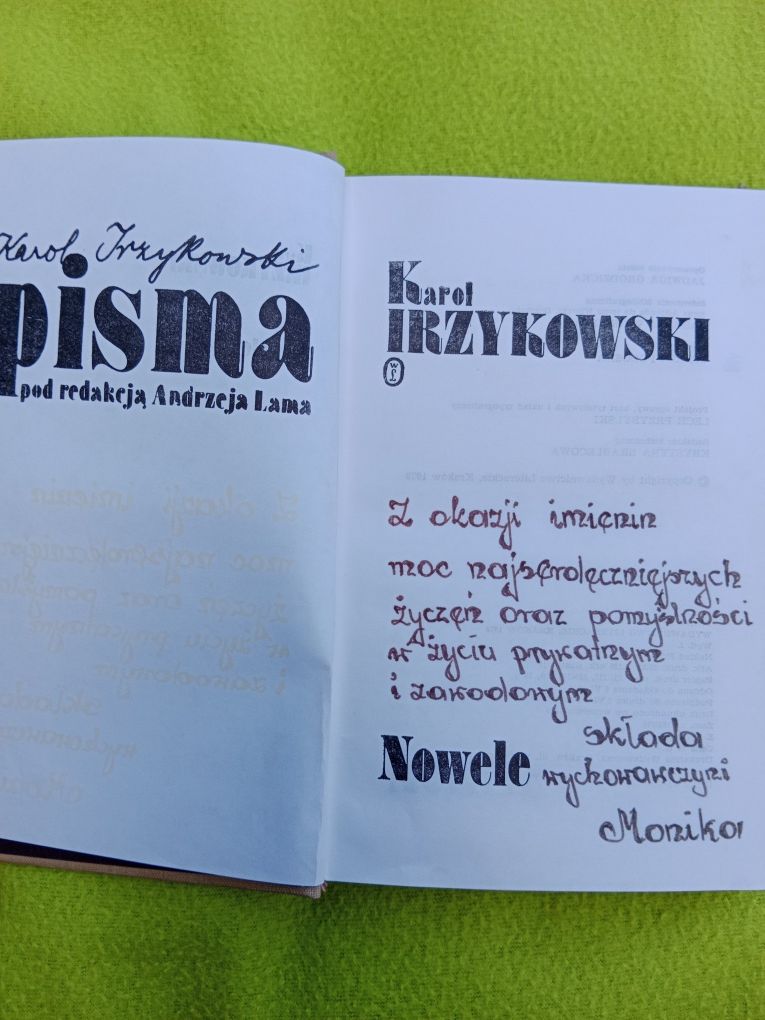 Karol Irzykowski
pisma
pod redakcją Andrzeja Lama
Karol
IRZYKOWSKI
Z okazji imienin
moc najserdeczniejszych
życzeń oraz pomyślności
w życiu prywatnym
i zawodowym
składa
Nowele wychowawczyni
Monika